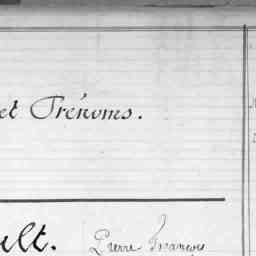 et Prénoms.
ult. Pierre François